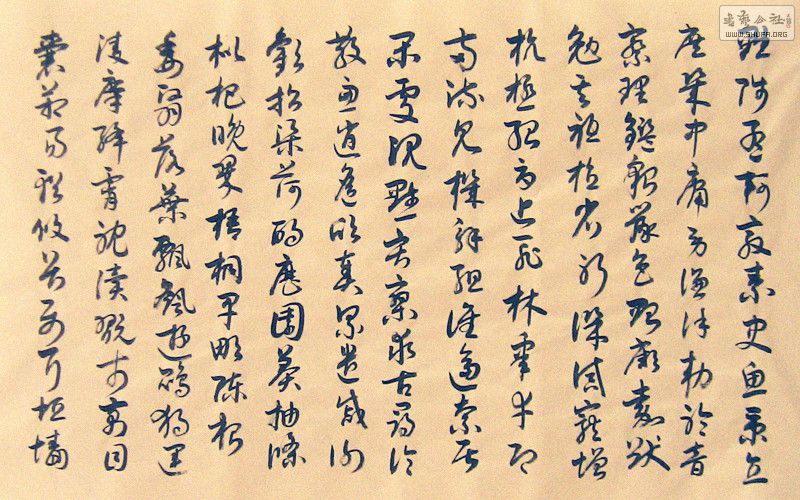 书法公社
WWW.SHUFA.ORG
黜陟孟軻敦素史魚秉直
庶幾中庸勞謙謹敕聆音
察理鑑貌辨色貽厥嘉猷
勉其祗植省躬譏誡寵增
抗極殆辱近恥林皋幸即
兩疏見機解組誰逼索居
閑處沉默寂寥求古尋論
散慮逍遙欣奏累遣慼謝
歡招渠荷的歷園莽抽條
枇杷晚翠梧桐早凋陳根
委翳落葉飄颻遊鵾獨運
凌摩絳霄耽讀翫市寓目
囊箱易輶攸畏屬耳垣墻